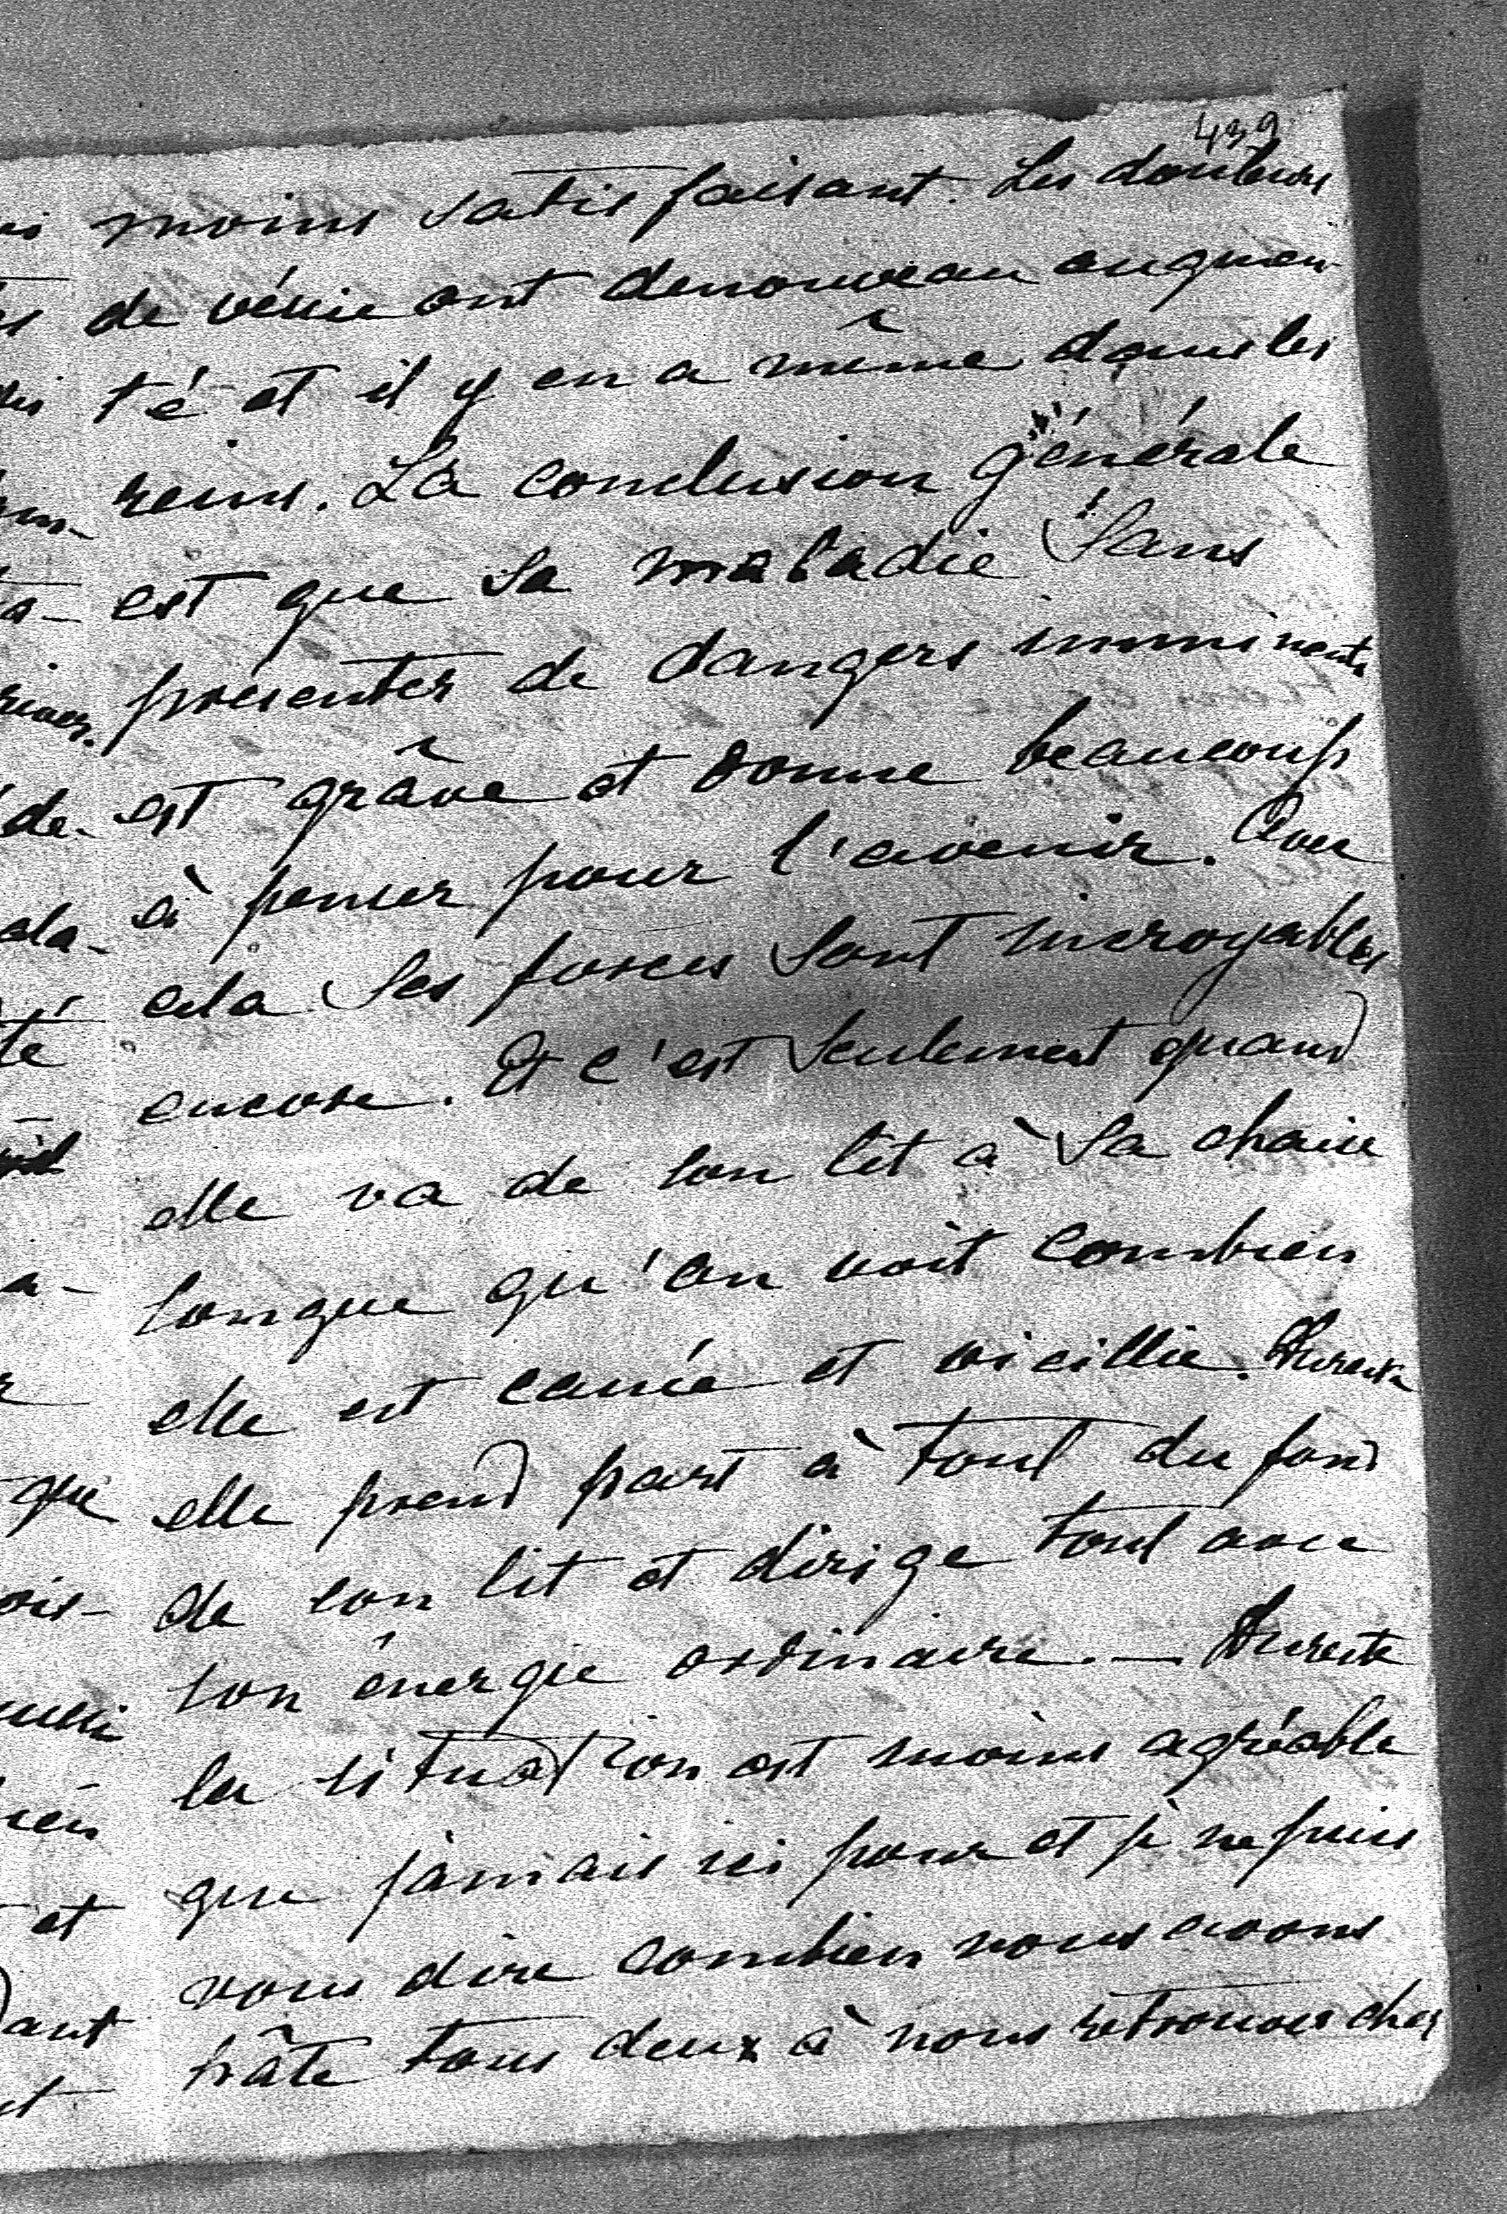 439
moins satisfaisant. Les douleurs
de vessie ont denouveau augmen-
té et il y en a même dans les
reins. La conclusion générale
est que sa maladie sans
présenter de dangers imminents
est grâve et donne beaucoup
à penser pour l'avenir. Avec
cela ses forces sont incroyables
encore. Et c'est seulement quand
elle va de son lit à sa chaise
longue qu'on voit combien
elle est cassée et vieillie. Dureste
elle prend part à tout du fond
de son lit et dirige tout avec
son énergie ordinaire. — Dureste
la situation est moins agréable
que jamais ici pour et je ne puis
vous dire combien nous avons
hâte tous deux à nous retrouver chez